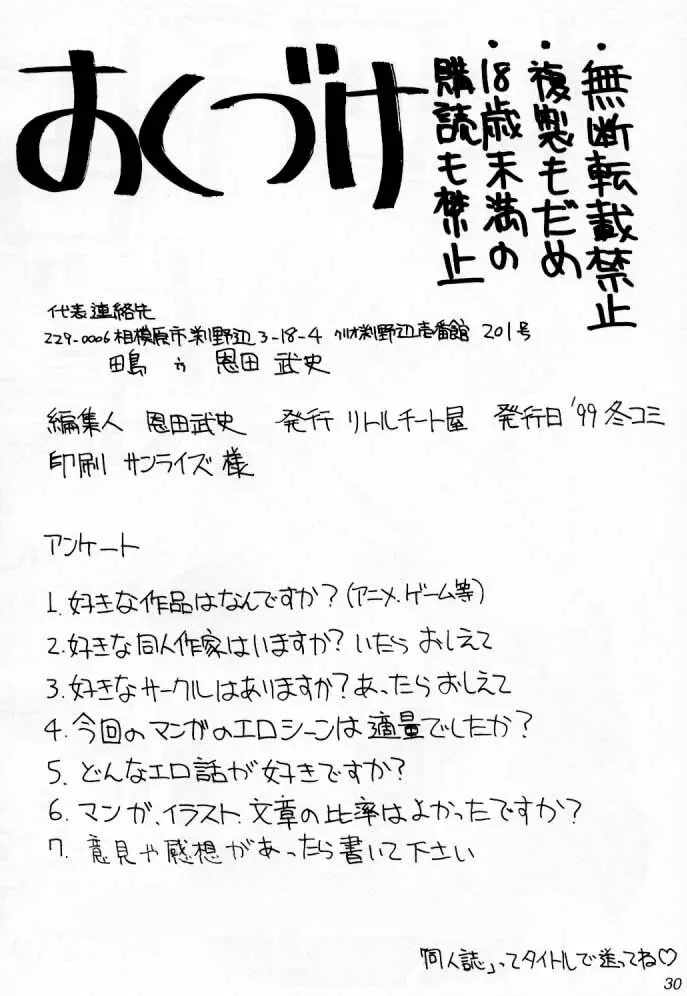 おくづけ
・無断転載禁止
・複製もだめ
・18歳未満の
購読も禁止
代表連絡先
229-0006 相模原市渕野辺3-18-4 クリオ渕野辺壱番館 201号
恩田 武史
編集人 恩田武史 発行 リトルチート屋 発行日 '99冬コミ
印刷 サンライズ様
アンケート
1. 好きな作品はなんですか?(アニメ、ゲーム等)
2. 好きな同人作家はいますか? いたら おしえて
3. 好きなサークルはありますか? あったら おしえて
4. 今回のマンガのエロシーンは適量でしたか?
5. どんなエロ話が好きですか?
6. マンガ、イラスト、文章の比率はよかったですか?
7. 意見や感想があったら書いて下さい
「同人誌」ってタイトルで送ってね♡
30